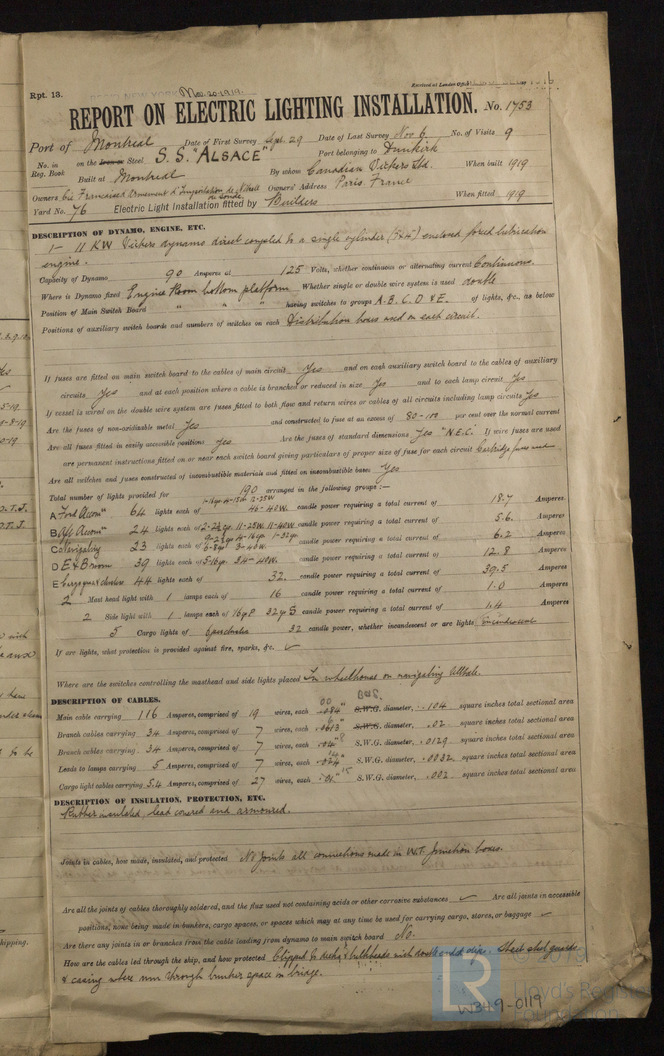 Rpt. 13.
Nov. 20. 1919.
Received at London Office
REPORT ON ELECTRIC LIGHTING INSTALLATION. No. 1753
Port of Montreal Date of First Survey Sept. 29 Date of Last Survey Nov 6 No. of Visits 9
No. in Reg. Book on the Iron or Steel S.S. "ALSACE" Port belonging to Dunkirk
Built at Montreal By whom Canadian Vickers Ltd. When built 1919
Owners Owners' Address Paris France
Yard No. 76 Electric Light Installation fitted by Builders When fitted 1919
DESCRIPTION OF DYNAMO, ENGINE, ETC.
1 - 11 KW Vickers dynamo direct coupled to a single cylinder enclosed forced lubrication
engine.
Capacity of Dynamo 90 Amperes at 125 Volts, whether continuous or alternating current Continuous.
Where is Dynamo fixed Engine Room bottom platform Whether single or double wire system is used double
Position of Main Switch Board " " " having switches to groups A. B. C. D & E. of lights, &c., as below
Positions of auxiliary switch boards and numbers of switches on each Distribution boxes used on each circuit.
If fuses are fitted on main switch board to the cables of main circuit Yes and on each auxiliary switch board to the cables of auxiliary
circuits Yes and at each position where a cable is branched or reduced in size Yes and to each lamp circuit Yes
If vessel is wired on the double wire system are fuses fitted to both flow and return wires or cables of all circuits including lamp circuits Yes
Are the fuses of non-oxidizable metal Yes and constructed to fuse at an excess of 80-100 per cent over the normal current
Are all fuses fitted in easily accessible positions Yes Are the fuses of standard dimensions Yes "N.E.C. If wire fuses are used
are permanent instructions fitted on or near each switch board giving particulars of proper size of fuse for each circuit Cartridge fuses used
Are all switches and fuses constructed of incombustible materials and fitted on incombustible bases Yes
Total number of lights provided for 190 arranged in the following groups :—
A 64 lights each of 46-40W. candle power requiring a total current of 18.7 Amperes
B 24 lights each of 11-25W. 11-40W. candle power requiring a total current of 5.6. Amperes
C Navigating 23 lights each of 3-40W. candle power requiring a total current of 6.2 Amperes
D E & B room 39 lights each of 5-16cp. 34-40W. candle power requiring a total current of 12.8 Amperes
E 44 lights each of 32. candle power requiring a total current of 39.5 Amperes
2 Mast head light with 1 lamps each of 16 candle power requiring a total current of 1.0 Amperes
2 Side light with 1 lamps each of 16cp P 32cp S candle power requiring a total current of 1.4 Amperes
5 Cargo lights of 32 candle power, whether incandescent or arc lights incandescent
If arc lights, what protection is provided against fire, sparks, &c. ✓
Where are the switches controlling the masthead and side lights placed In wheelhouse on navigating
DESCRIPTION OF CABLES.
Main cable carrying 116 Amperes, comprised of 19 wires, each S.W.G. diameter, .104 square inches total sectional area
Branch cables carrying 34 Amperes, comprised of 7 wires, each S.W.G. diameter, .02 square inches total sectional area
Branch cables carrying 34 Amperes, comprised of 7 wires, each S.W.G. diameter, .0129 square inches total sectional area
Leads to lamps carrying 5 Amperes, comprised of 7 wires, each S.W.G. diameter, .0032 square inches total sectional area
Cargo light cables carrying 5.4 Amperes, comprised of 27 wires, each S.W.G. diameter, .002 square inches total sectional area
DESCRIPTION OF INSULATION, PROTECTION, ETC.
Rubber insulated, lead covered and armoured.
Joints in cables, how made, insulated, and protected No joints all connections made in W.T. junction boxes.
Are all the joints of cables thoroughly soldered, and the flux used not containing acids or other corrosive substances ✓ Are all joints in accessible
positions, none being made in bunkers, cargo spaces, or spaces which may at any time be used for carrying cargo, stores, or baggage ✓
Are there any joints in or branches from the cable leading from dynamo to main switch board No.
How are the cables led through the ship, and how protected Clipped to decks & bulkheads with clips. Sheet steel guards
& casing where run through bunker space in bridge.
LR
Lloyd's Register
Foundation
W349-0119